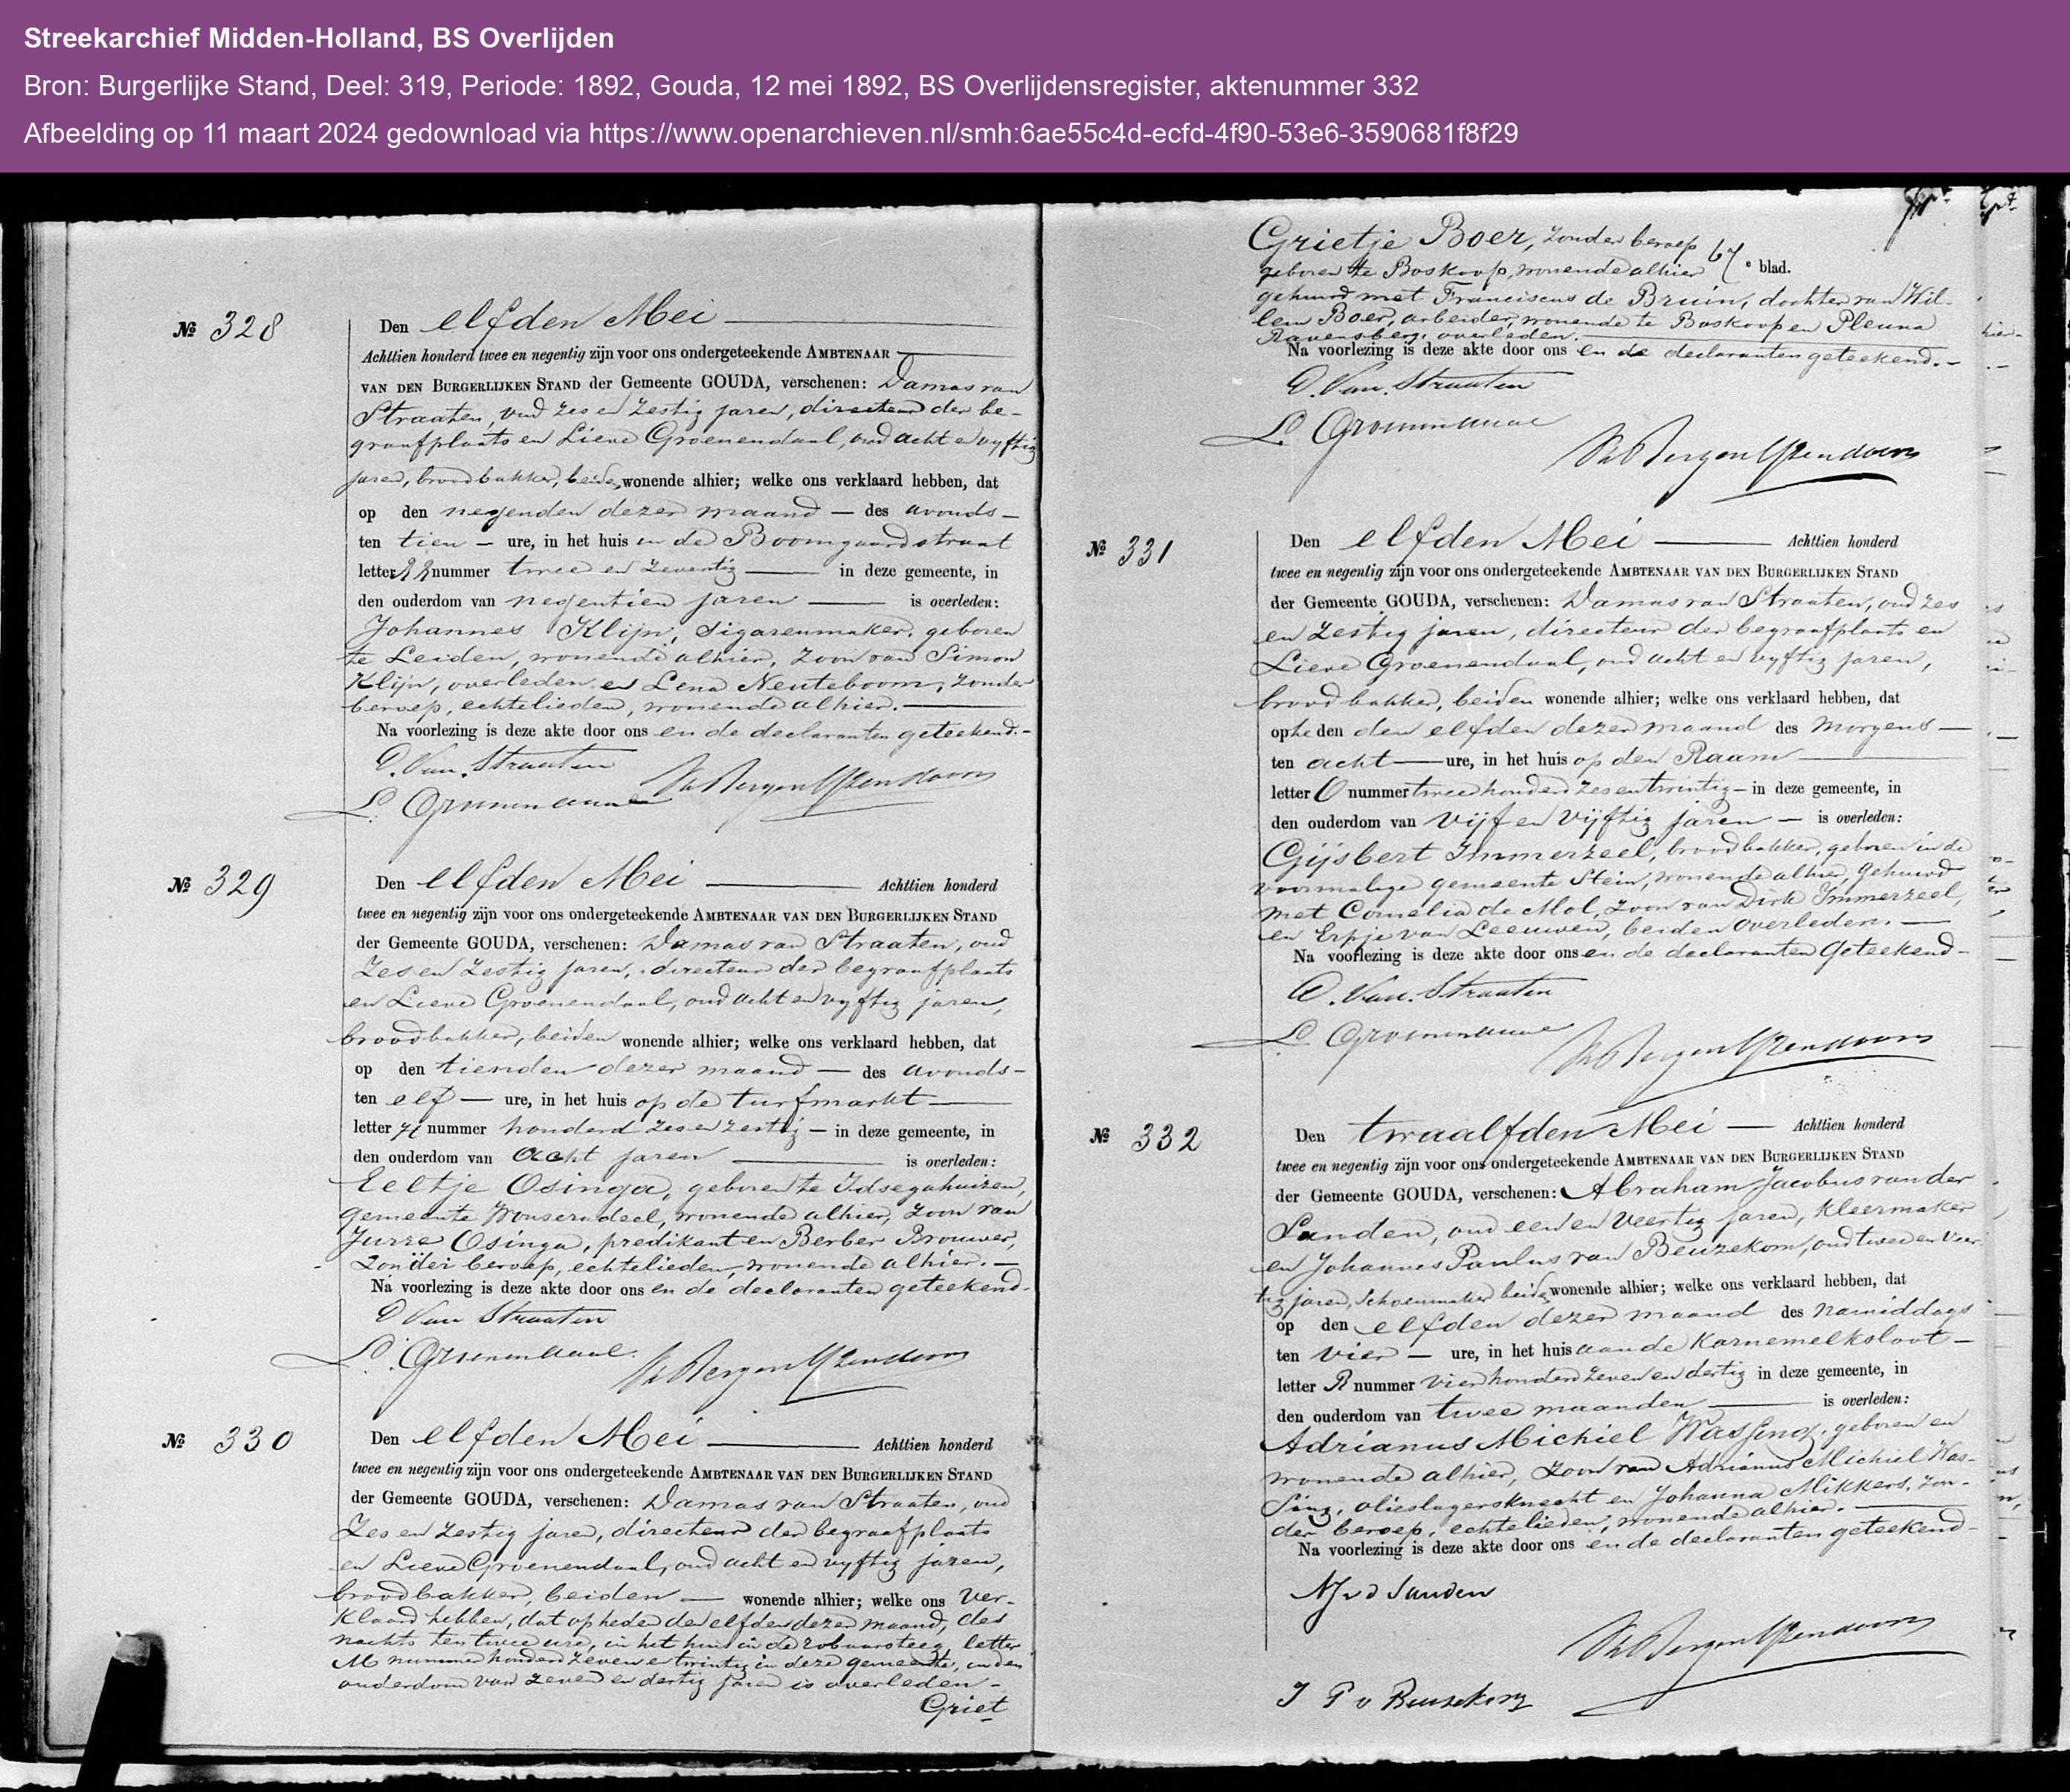 Streekarchief Midden-Holland, BS Overlijden
Bron: Burgerlijke Stand, Deel: 319, Periode: 1892, Gouda, 12 mei 1892, BS Overlijdensregister, aktenummer 332
Afbeelding op 11 maart 2024 gedownload via https://www.openarchieven.nl/smh:6ae55c4d-ecfd-4f90-53e6-3590681f8f29
№ 328
Den elfden Mei
Achttien honderd twee en negentig zijn voor ons ondergeteekende AMBTENAAR
VAN DEN BURGERLIJKEN STAND der Gemeente GOUDA, verschenen: Damas van
Straaten, oud zes en zestig jaren, directeur der be-
graafplaats en Lieve Groenendaal, oud acht en vyftig
jaren, broodbakker, beiden wonende alhier; welke ons verklaard hebben, dat
op den negenden dezer maand — des avonds —
ten tien — ure, in het huis in de Boomgaardstraat
letter nummer twee en zeventig — in deze gemeente, in
den ouderdom van negentien jaren — is overleden:
Johannes Klijn, sigarenmaker, geboren
te Leiden, wonende alhier, zoon van Simon
Klijn, overleden en Lena Neuteboom, zonder
beroep, echtelieden, wonende alhier. —
Na voorlezing is deze akte door ons en de declaranten geteekend. -
D. Van. Straaten
L. Groenendaal
№ 329
Den elfden Mei — Achttien honderd
twee en negentig zijn voor ons ondergeteekende AMBTENAAR VAN DEN BURGERLIJKEN STAND
der Gemeente GOUDA, verschenen: Damas van Straaten, oud
zes en zestig jaren, directeur der begraafplaats
en Lieve Groenendaal, oud acht en vyftig jaren,
broodbakker, beiden wonende alhier; welke ons verklaard hebben, dat
op den tienden dezer maand — des avonds -
ten elf — ure, in het huis op de turfmarkt —
letter H nummer honderd zes en zestig — in deze gemeente, in
den ouderdom van acht jaren — is overleden:
Eeltje Osinga, geboren te Idsegahuizen,
gemeente Wonseradeel, wonende alhier, zoon van
Jurre Osinga, predikant en Berber Brouwer,
zonder beroep, echtelieden, wonende alhier. —
Na voorlezing is deze akte door ons en de declaranten geteekend -
D Van Straaten
L. Groenendaal.
№ 330
Den elfden Mei — Achttien honderd
twee en negentig zijn voor ons ondergeteekende AMBTENAAR VAN DEN BURGERLIJKEN STAND
der Gemeente GOUDA, verschenen: Damas van Straaten, oud
zes en zestig jaren, directeur der begraafplaats
en Lieve Groenendaal, oud acht en vyftig jaren,
broodbakker, beiden — wonende alhier; welke ons ver-
klaard hebben, dat op heden den elfden dezer maand, des
nachts ten twee ure, in het huis in de steeg, letter
M nummer honderd zeven en twintig in deze gemeente, in den
ouderdom van zeven en dertig jaren is overleden -
Griet
Grietje Boer, zonder beroep
67e blad.
geboren te Boskoop, wonende alhier
gehuwd met Franciscus de Bruin, dochter van Wil-
lem Boer, arbeider, wonende te Boskoop en Pleuna
Ravensberg, overleden.
Na voorlezing is deze akte door ons en de declaranten geteekend. -
D. Van. Straaten
L. Groenendaal
№ 331
Den elfden Mei — Achttien honderd
twee en negentig zijn voor ons ondergeteekende AMBTENAAR VAN DEN BURGERLIJKEN STAND
der Gemeente GOUDA, verschenen: Damas van Straaten, oud zes
en zestig jaren, directeur der begraafplaats en
Lieve Groenendaal, oud acht en vyftig jaren,
broodbakker, beiden wonende alhier; welke ons verklaard hebben, dat
op heden den elfden dezer maand des morgens —
ten acht — ure, in het huis op den Raam —
letter O nummer twee honderd zes en twintig — in deze gemeente, in
den ouderdom van vijf en vijftig jaren — is overleden:
Gijsbert Immerzeel, broodbakker, geboren in de
voormalige gemeente Stein, wonende alhier, gehuwd
met Cornelia de Mol, zoon van Dirk Immerzeel,
en Erpje van Leeuwen, beiden overleden. —
Na voorlezing is deze akte door ons en de declaranten geteekend -
D. Van. Straaten
L. Groenendaal
№ 332
Den twaalfden Mei — Achttien honderd
twee en negentig zijn voor ons ondergeteekende AMBTENAAR VAN DEN BURGERLIJKEN STAND
der Gemeente GOUDA, verschenen: Abraham Jacobus van der
Sanden, oud een en veertig jaren, kleermaker
en Johannes Paulus van Beuzekom, oud twee en veer
tig jaren, schoenmaker beiden wonende alhier; welke ons verklaard hebben, dat
op den elfden dezer maand des namiddags
ten vier — ure, in het huis aan de Karnemelksloot —
letter R nummer vierhonderd zeven en dertig in deze gemeente, in
den ouderdom van twee maanden — is overleden:
Adrianus Michiel Wassing, geboren en
wonende alhier, zoon van Adrianus Michiel Was-
sing, olieslagersknecht en Johanna Mikkers, zon-
der beroep, echtelieden, wonende alhier. —
Na voorlezing is deze akte door ons en de declaranten geteekend -
AJvd Sanden
J P v Beuzekom